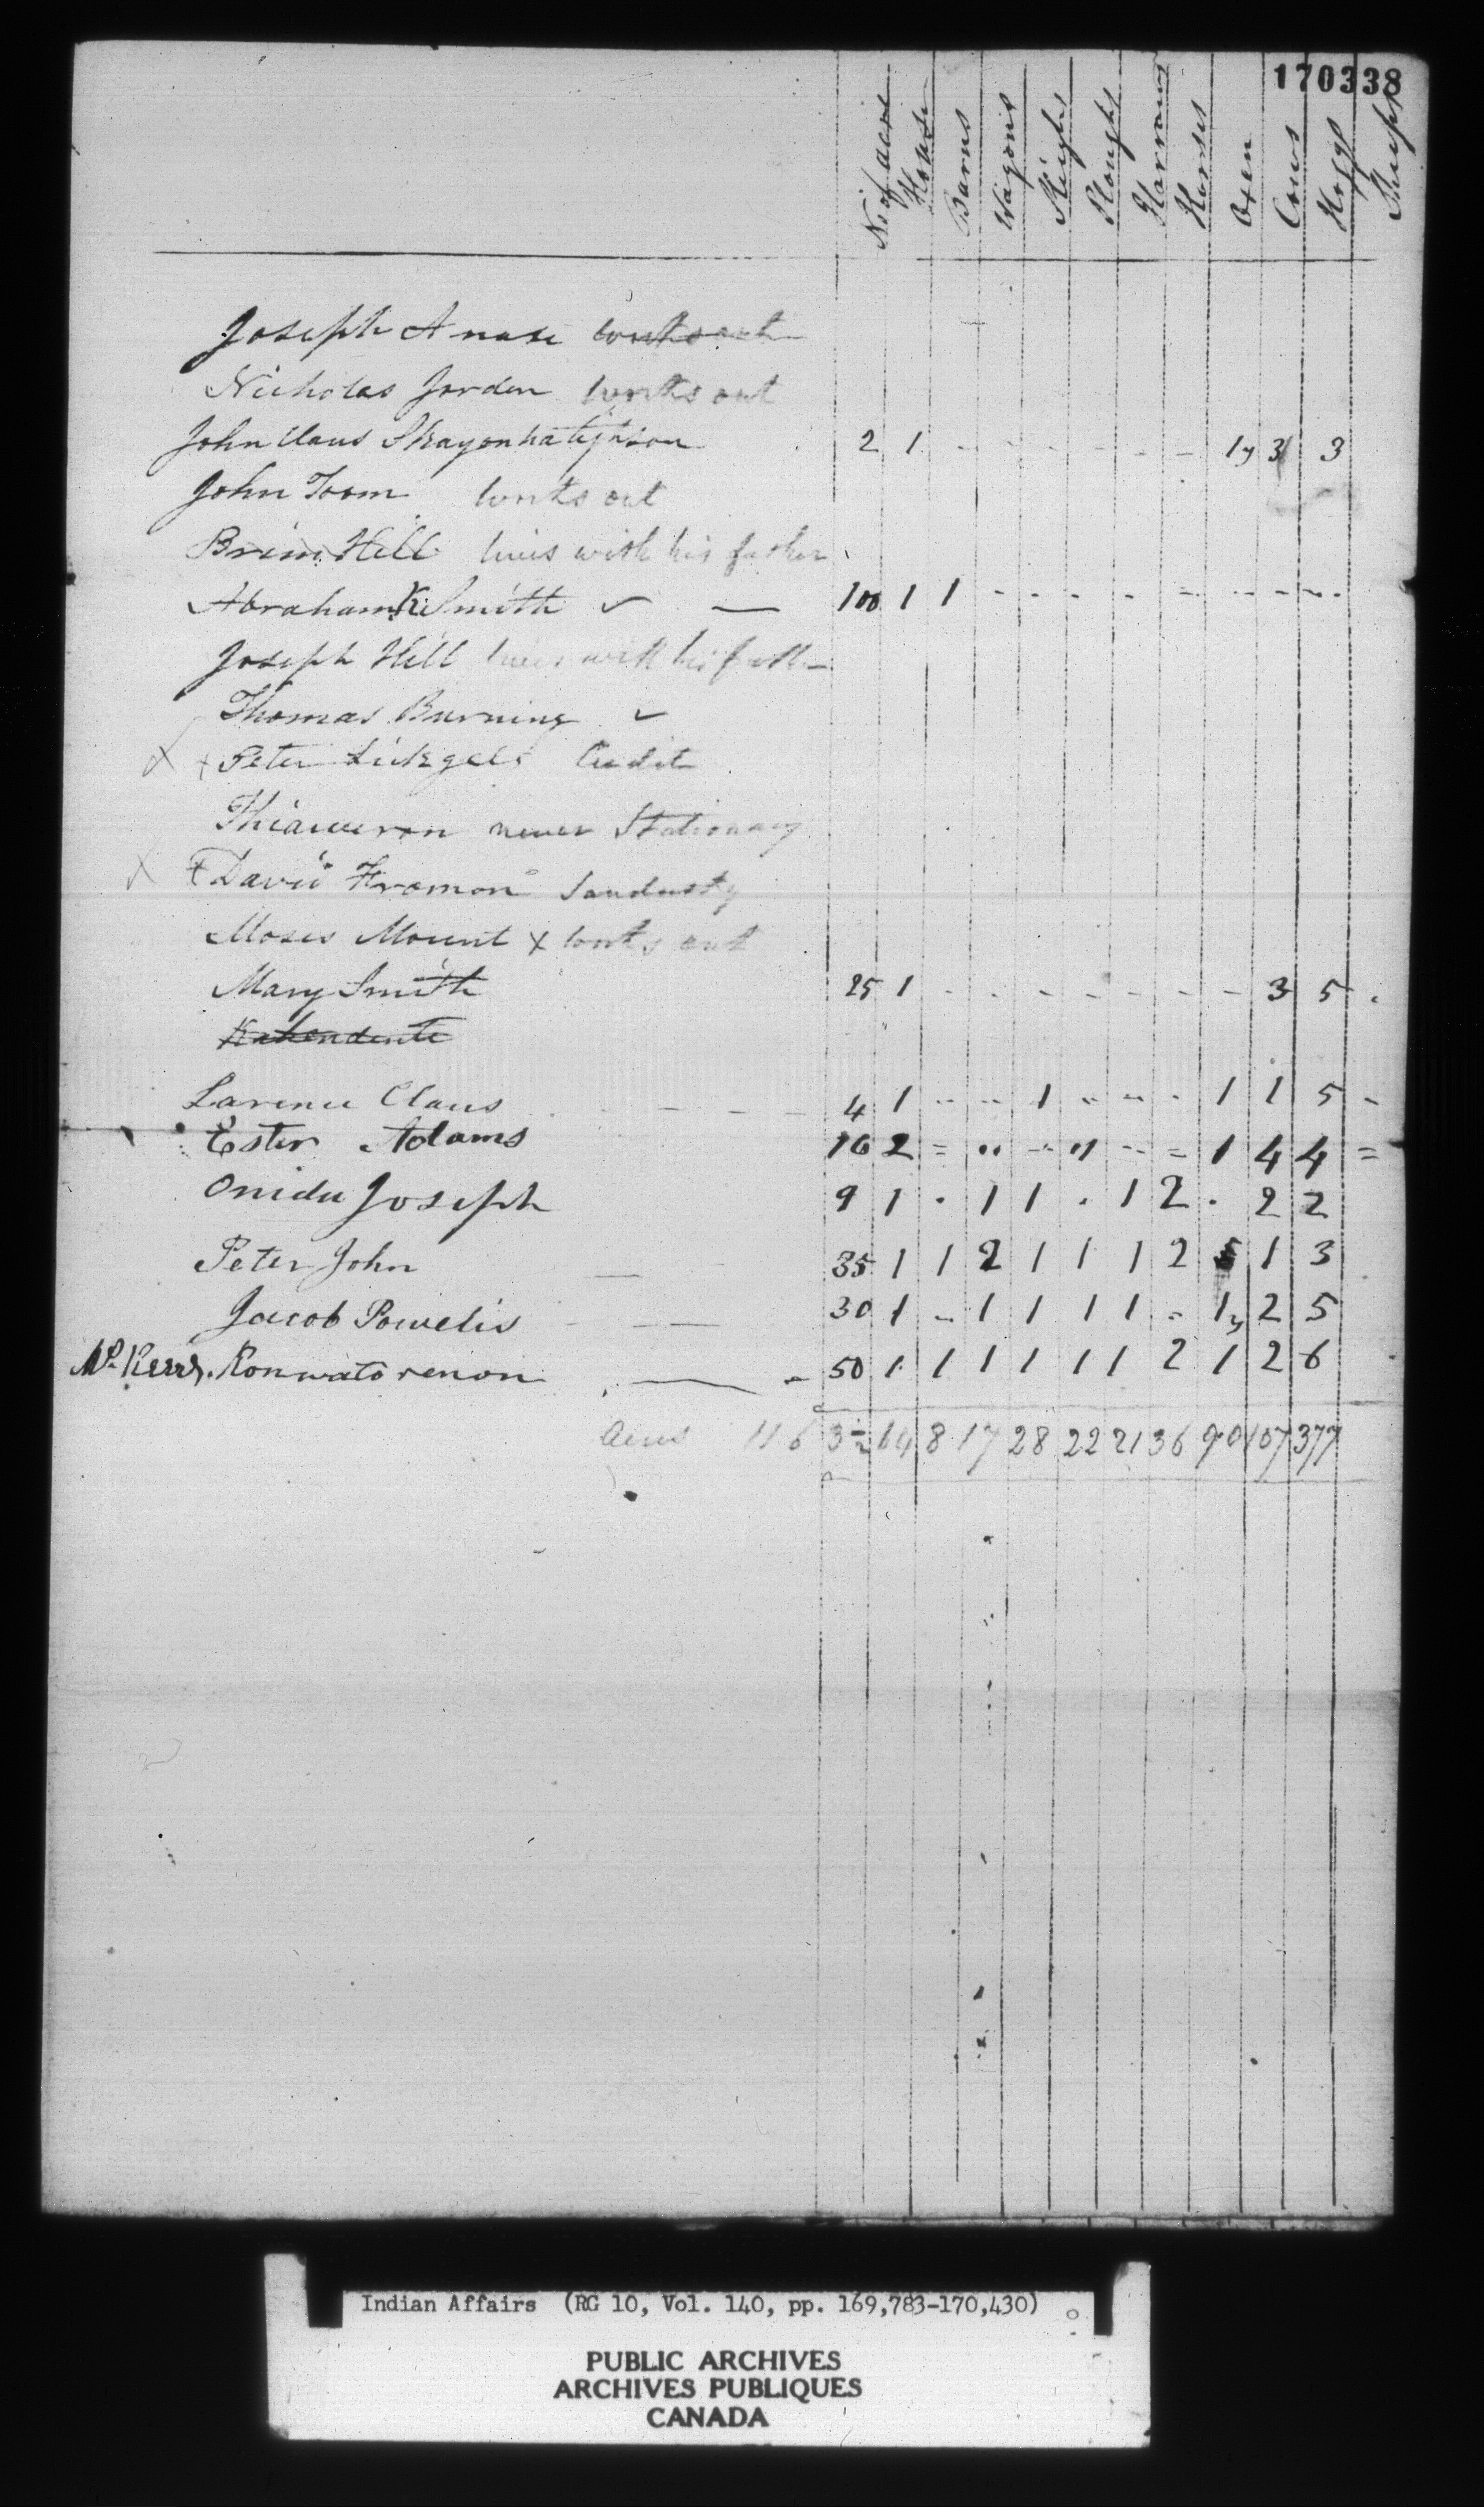 170338
No of acre House Barns Wagons Sleighs Ploughs Harrows Horses Oxen Cows Hoggs Sheep
Joseph Anase works out
Nicholas Jorden works out
John Claus 2 1 - - - - - - 1y 3 3
John Toom works out
Brim Hill lives with his father
Abraham K Smith ✓ — 100 1 1 - - - - - - - - -
Joseph Hill lives with his father
Thomas Burning ✓
X + Peter Credit
never Stationary
X David Sandusky
Moses Mount x works out
Mary Smith 25 1 - - - - - - - 3 5 -
Kahendente
Larence Claus 4 1 - - 1 - - - 1 1 5 -
Ester Adams 16 2 = " - " - = 1 4 4 =
Onida Joseph 9 1 . 1 1 . 1 2 . 2 2
Peter John — 35 1 1 2 1 1 1 2 5 1 3
Jacob Powelis — 30 1 - 1 1 1 1 - 1y 2 5
Mr Kerrs. Konwatorenon — 50 1 1 1 1 1 1 2 1 2 6
Acres 116 3½ 64 8 17 28 22 21 36 90 107 377
Indian Affairs (RG 10, Vol. 140, pp. 169,783-170,430)
PUBLIC ARCHIVES
ARCHIVES PUBLIQUES
CANADA